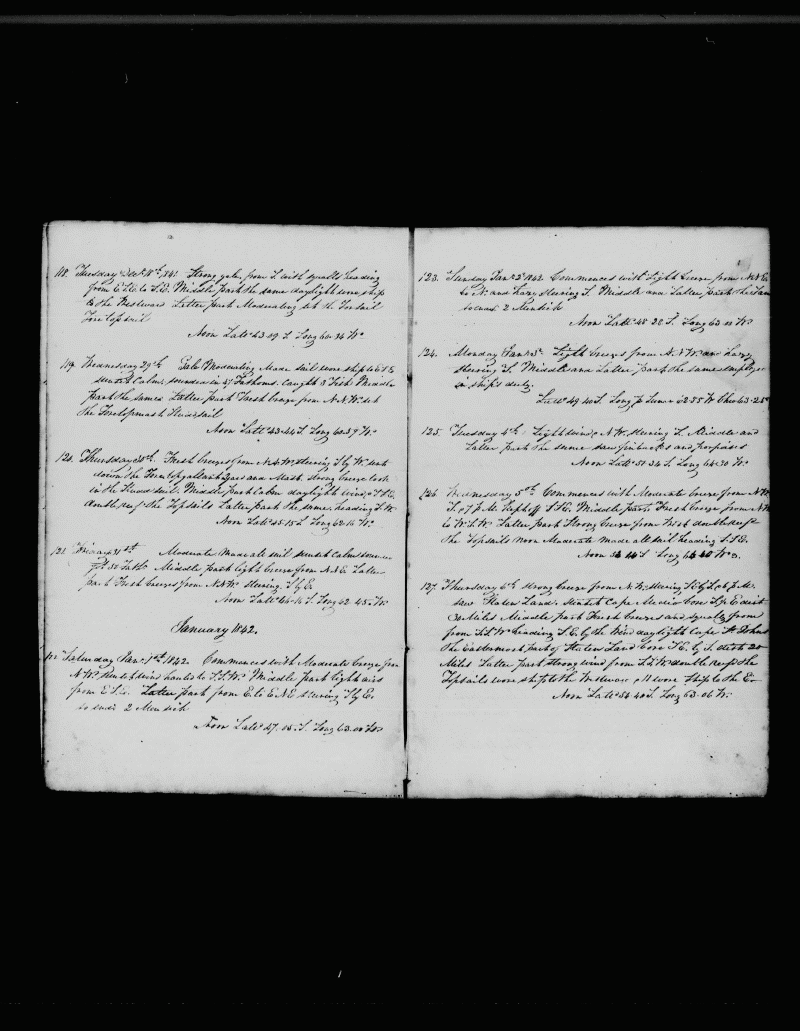 118. Tuesday Dec. 28th, 1841 Strong gale from S. with squalls heading
from E.S.E. to S.E. Middle part the same daylight wore ship
to the Westward Latter part Moderating set the Foresail
Fore topsail
Noon Latd 43.09 S. Long 60.34 W.
119. Wednesday 29th Gale Moderating Made sail wore ship to
sunset Calm, sounded in 47 Fathoms. Caught 3 Fish Middle
part the same Latter part Fresh breeze from N.N.W. set
the Foretopmast Studdsail
Noon Latd 43.44 S. Long 60.39 W.
120. Thursday 30th. Fresh breezes from N.N.W. steering S by W. sent
down the Fore top gallant Yard and Mast. strong breeze took
in the Studdsail. Middle part Calm daylight wind S.S.E.
double reef the Topsails Latter part the same heading S.W.
Noon Latd 45.15 S. Long 62.16 W.
121. Friday 31st Moderate made all sail sunset Calm sounded
50 Faths Middle part light breeze from N.N.E. Latter
part Fresh breezes from N.N.W. steering S by E.
Noon Latd 46.16 S. Long 62.45 W.
January 1842.
122 Saturday Jan. 1st 1842. Commences with Moderate breeze from
N.W. sunset wind hauls to S.S.W. Middle part light airs
from E.S.E. Latter part from E. to E.N.E steering S by E.
so ends 2 Men sick
Noon Latd 47.05 S. Long 63.00 W.
123. Sunday Jan. 2d 1842. Commences with Light breeze from N.N.E.
to N. and hazy steering S. Middle and Latter part the same
so ends 2 Men sick
Noon Latd 48.22 S. Long 63.00 W.
124. Monday Jan. 3d. Light breezes from N.N.W. and hazy
steering S. Middle and Latter part the same employed
in ship's duty.
Latd 49.40 S. Long p Lunar 62.55 W Chro 63.25
125. Tuesday 4th. Light winds N.W. steering S. Middle and
Latter part the same saw finbacks and porpoises
Noon Latd 51.34 S. Long 64.30 W.
126 Wednesday 5th Commences with Moderate breeze from N.W.
S. at 7 P.M. kept off S.S.E. Middle part Fresh breeze from N.W
to W.S.W. Latter part Strong breeze from West double reef
the Topsails noon Moderate made all sail heading S.S.E.
Noon Long 64.40 W.
127. Thursday 6th strong breeze from N.W. steering S.E. by S. at 6 P.M.
saw Staten Land. Sunset Cape bore S by E dist
30 Miles Middle part Fresh breezes and squally from
from S.S.W. heading S.E. by the Wind daylight Cape St Johns
the Eastermost part of Staten Land bore S.E. by S. dist 20
Miles Latter part strong wind from S.S.W. double reef the
Topsails wore ship to the Westward wore ship to the E
Noon Latd 54.40 S. Long 63.06 W.